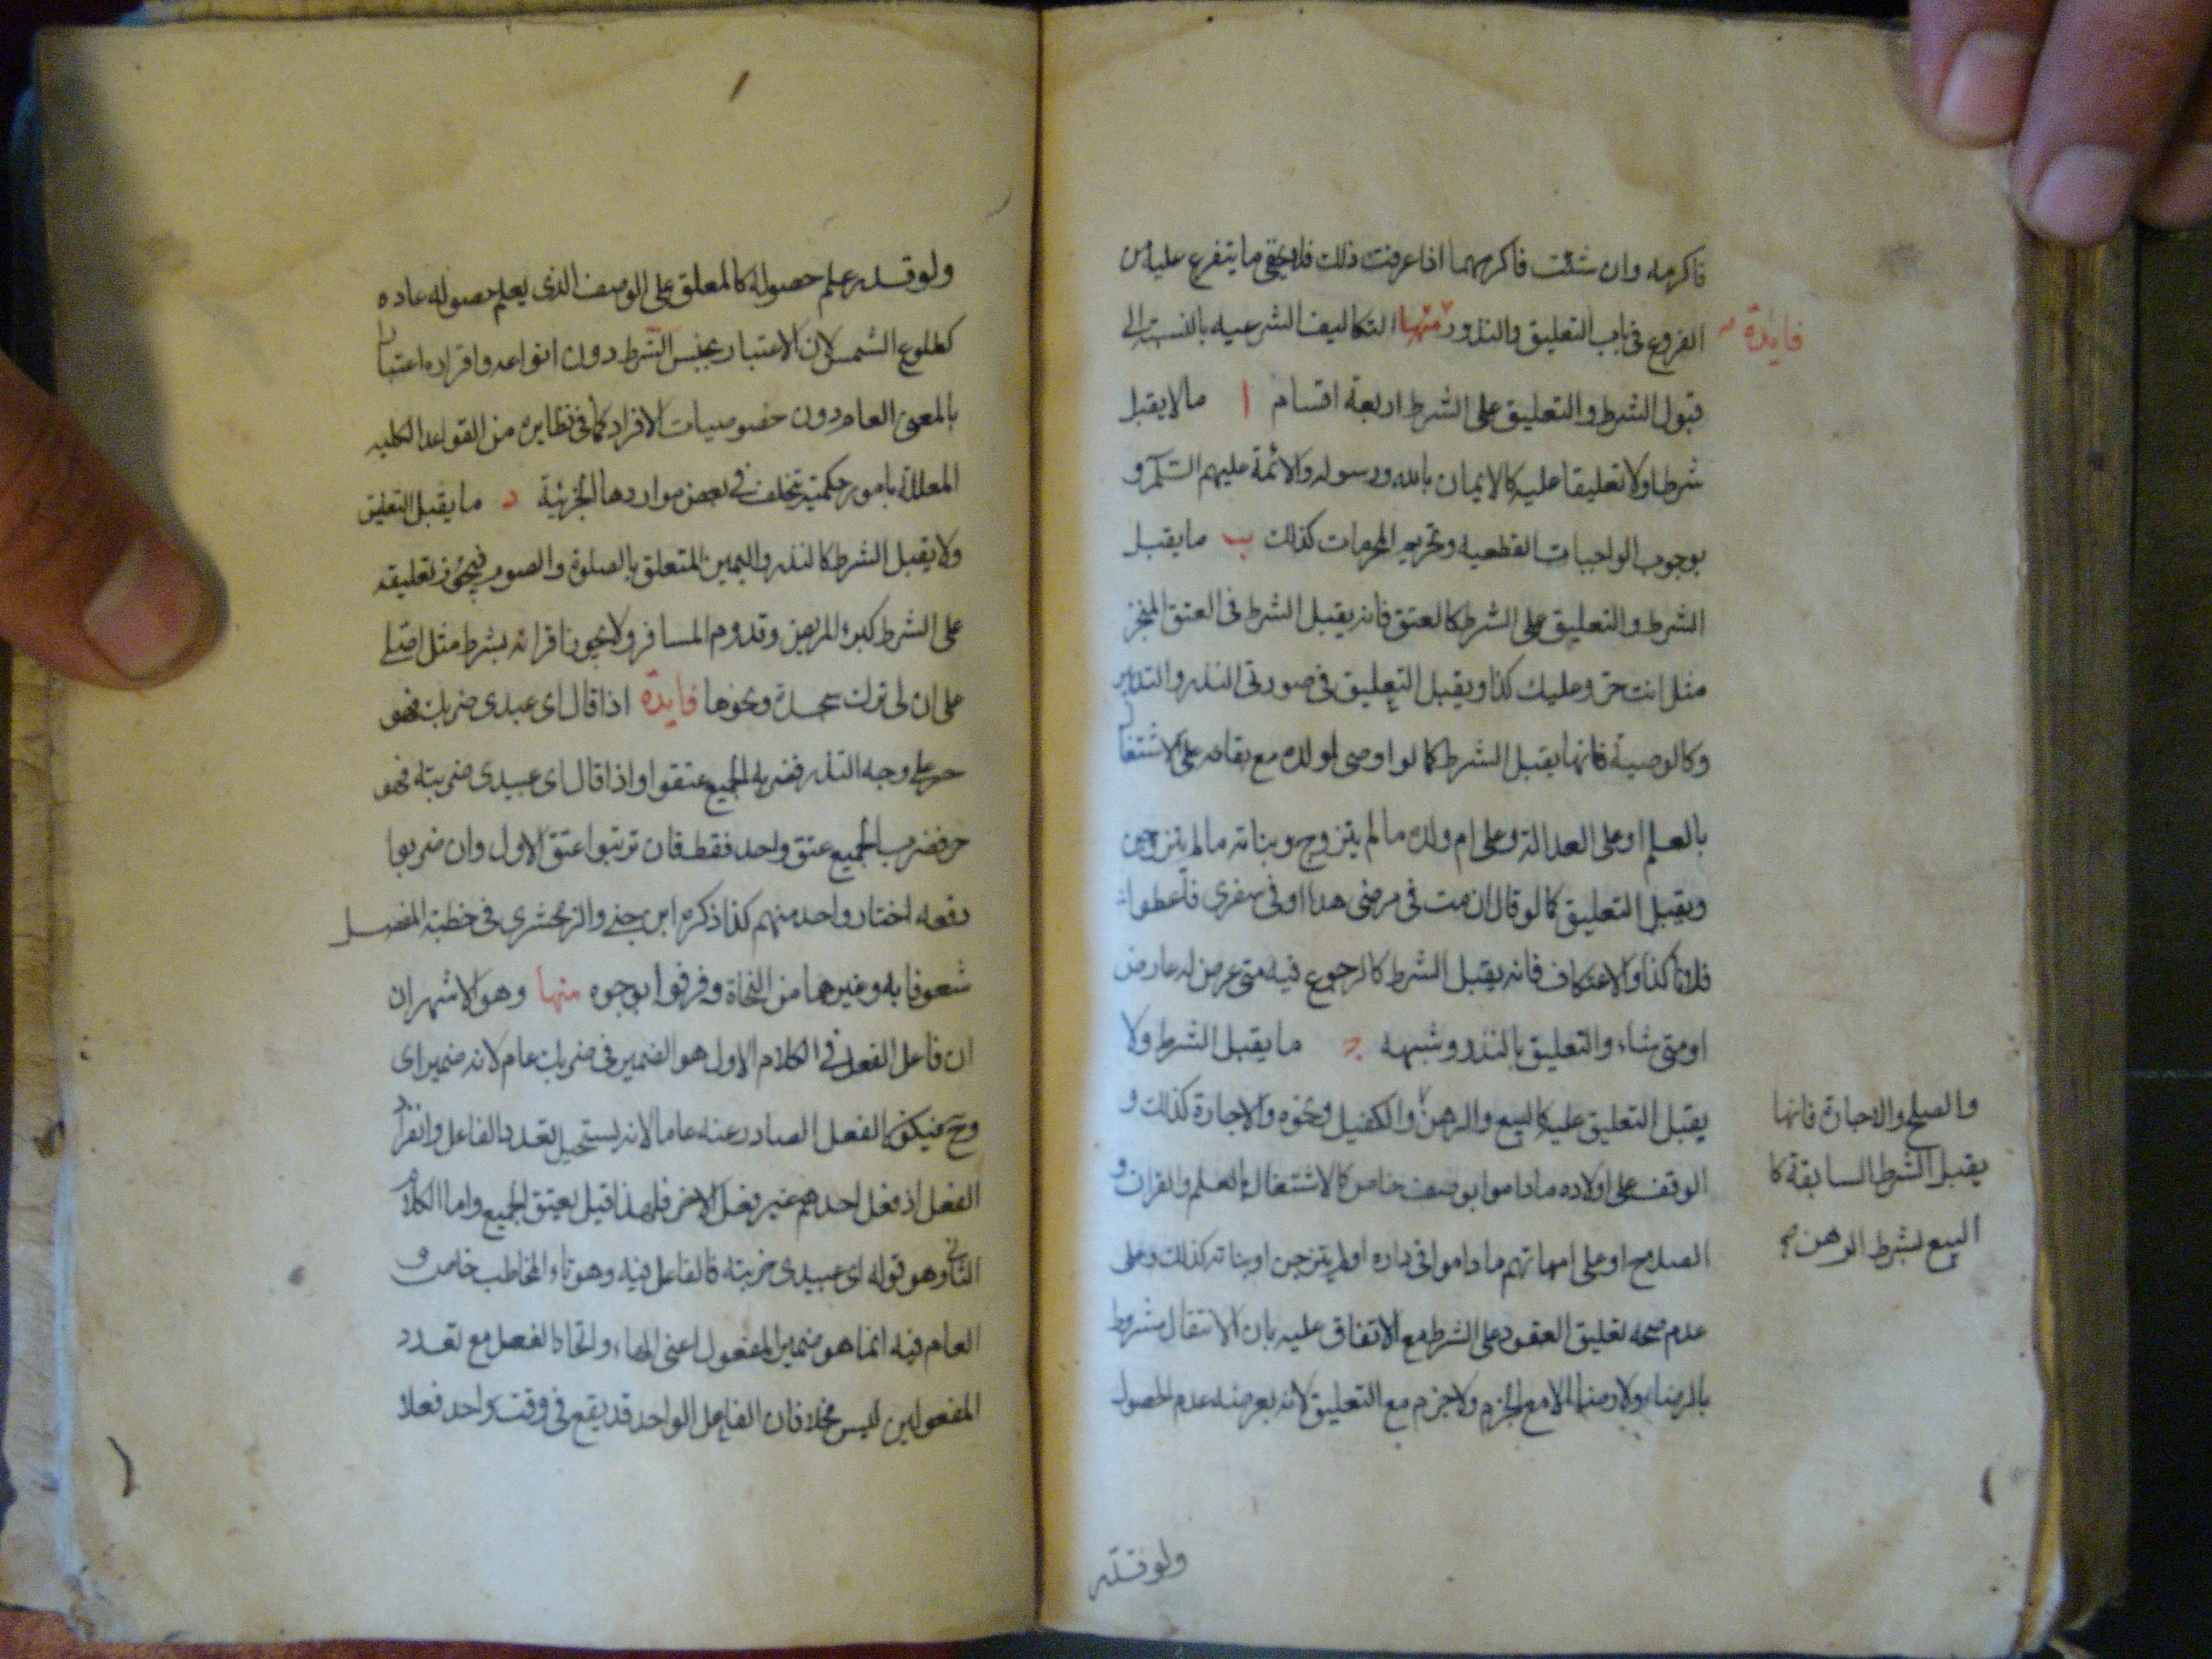 فاكرمه وان شئت فاكرمهما اذا عرفت ذلك فلا يخفى ما يتفرع عليه من
فايدة
الفروع فى باب التعليق والنذور منها التكاليف الشرعيه بالنسبة الى
قبول الشرط والتعليق على الشرط اربعة اقسام ا ما لا يقبل
شرطا ولا تعليقا عليه كالايمان بالله ورسوله والائمة عليهم السلم و
بوجوب الواجبات القطعيه وتحريم المحرمات كذلك ب ما يقبل
الشرط والتعليق على الشرط كالعتق فانه يقبل الشرط فى العتق المنجز
مثل انت حر وعليك كذا ويقبل التعليق فى صورتى النذر والتدبير
وكالوصية فانها يقبل الشرط كما لو اوصى لولده مع بقائه على الاشتغال
بالعلم او على العدالة وعلى ام ولده ما لم يتزوج وبناته ما لم يتزوجن
ويقبل التعليق كما لو قال ان مت فى مرضى هذا او فى سفرى فاعطوا
فلانا كذا والاعتكاف فانه يقبل الشرط كالرجوع فيه متى عرض له عارض
او متى شاء والتعليق بالنذر وشبهه ج ما يقبل الشرط ولا
يقبل التعليق عليه كالبيع والرهن والكفيل ونحوه والاجارة كذلك و
الوقف على اولاده ما داموا بوصف خاص كالاشتغال بالعلم والقران و
الصلاح او على امهاتهم ما داموا فى داره او لم يتزجن او بناته كذلك وعلى
عدم صحه تعليق العقود على الشرط مع الاتفاق عليه بان الانتقال مشروط
بالرضاء ولا رضا الا مع الجزم ولا جزم مع التعليق لانه بعرضه عدم الحصول
والصلح والاجارة فانها
يقبل الشرط السابقة كا
البيع بشرط الرهن
ولو قدر
ولو قدر علم حصوله كالمعلق على الوصف الذى يعلم حصوله عاده
كطلوع الشمس لان الاعتبار بجنس الشرط دون انواعه وافراده اعتبارا
بالمعنى العام دون خصوصيات الافراد كما فى نظايره من القواعد الكليه
المعللة بامور حكمية تتخلف فى بعض مواردها الجزئية د ما يقبل التعليق
ولا يقبل الشرط كالنذر واليمين المتعلق بالصلوة والصوم فيجوز تعليقه
على الشرط كبرء المريض وقدوم المسافر ولا يجوز اقرانه بشرط مثل اصلى
على ان لى ترك سجدة ونحوها فايدة اذا قال اى عبدى ضربك فهو
حر على وجه النذر فضربه الجميع عتقوا واذا قال اى عبيدى ضربته فهو
حر فضرب الجميع عتق واحد فقط فان ترتبوا عتق الاول وان ضربوا
دفعه اختار واحد منهم كذا ذكره ابن جنى والزمخشرى فى خطبة المفصل
شعوفا به وغيرهما من النحاة وفرقوا بوجوه منها وهو الاشهر ان
ان فاعل الفعل فى الكلام الاول هو الضمير فى ضربك عام لانه ضمير اى
وح فيكون الفعل الصادر عنه عاما لانه يستحيل تعدد الفاعل وانفراد
الفعل اذ فعل احدهم غير فعل الاخر فلهذا قيل بعتق الجميع واما الكلام
الثانى وهو قوله اى عبيدى ضربته فالفاعل فيه وهو تاء المخاطب خاص و
العام فيه انما هو ضمير المفعول اعنى الهاء واتحاد الفعل مع تعدد
المفعولين ليس محالا فان الفاعل الواحد قد يقع فى وقت واحد فعلا